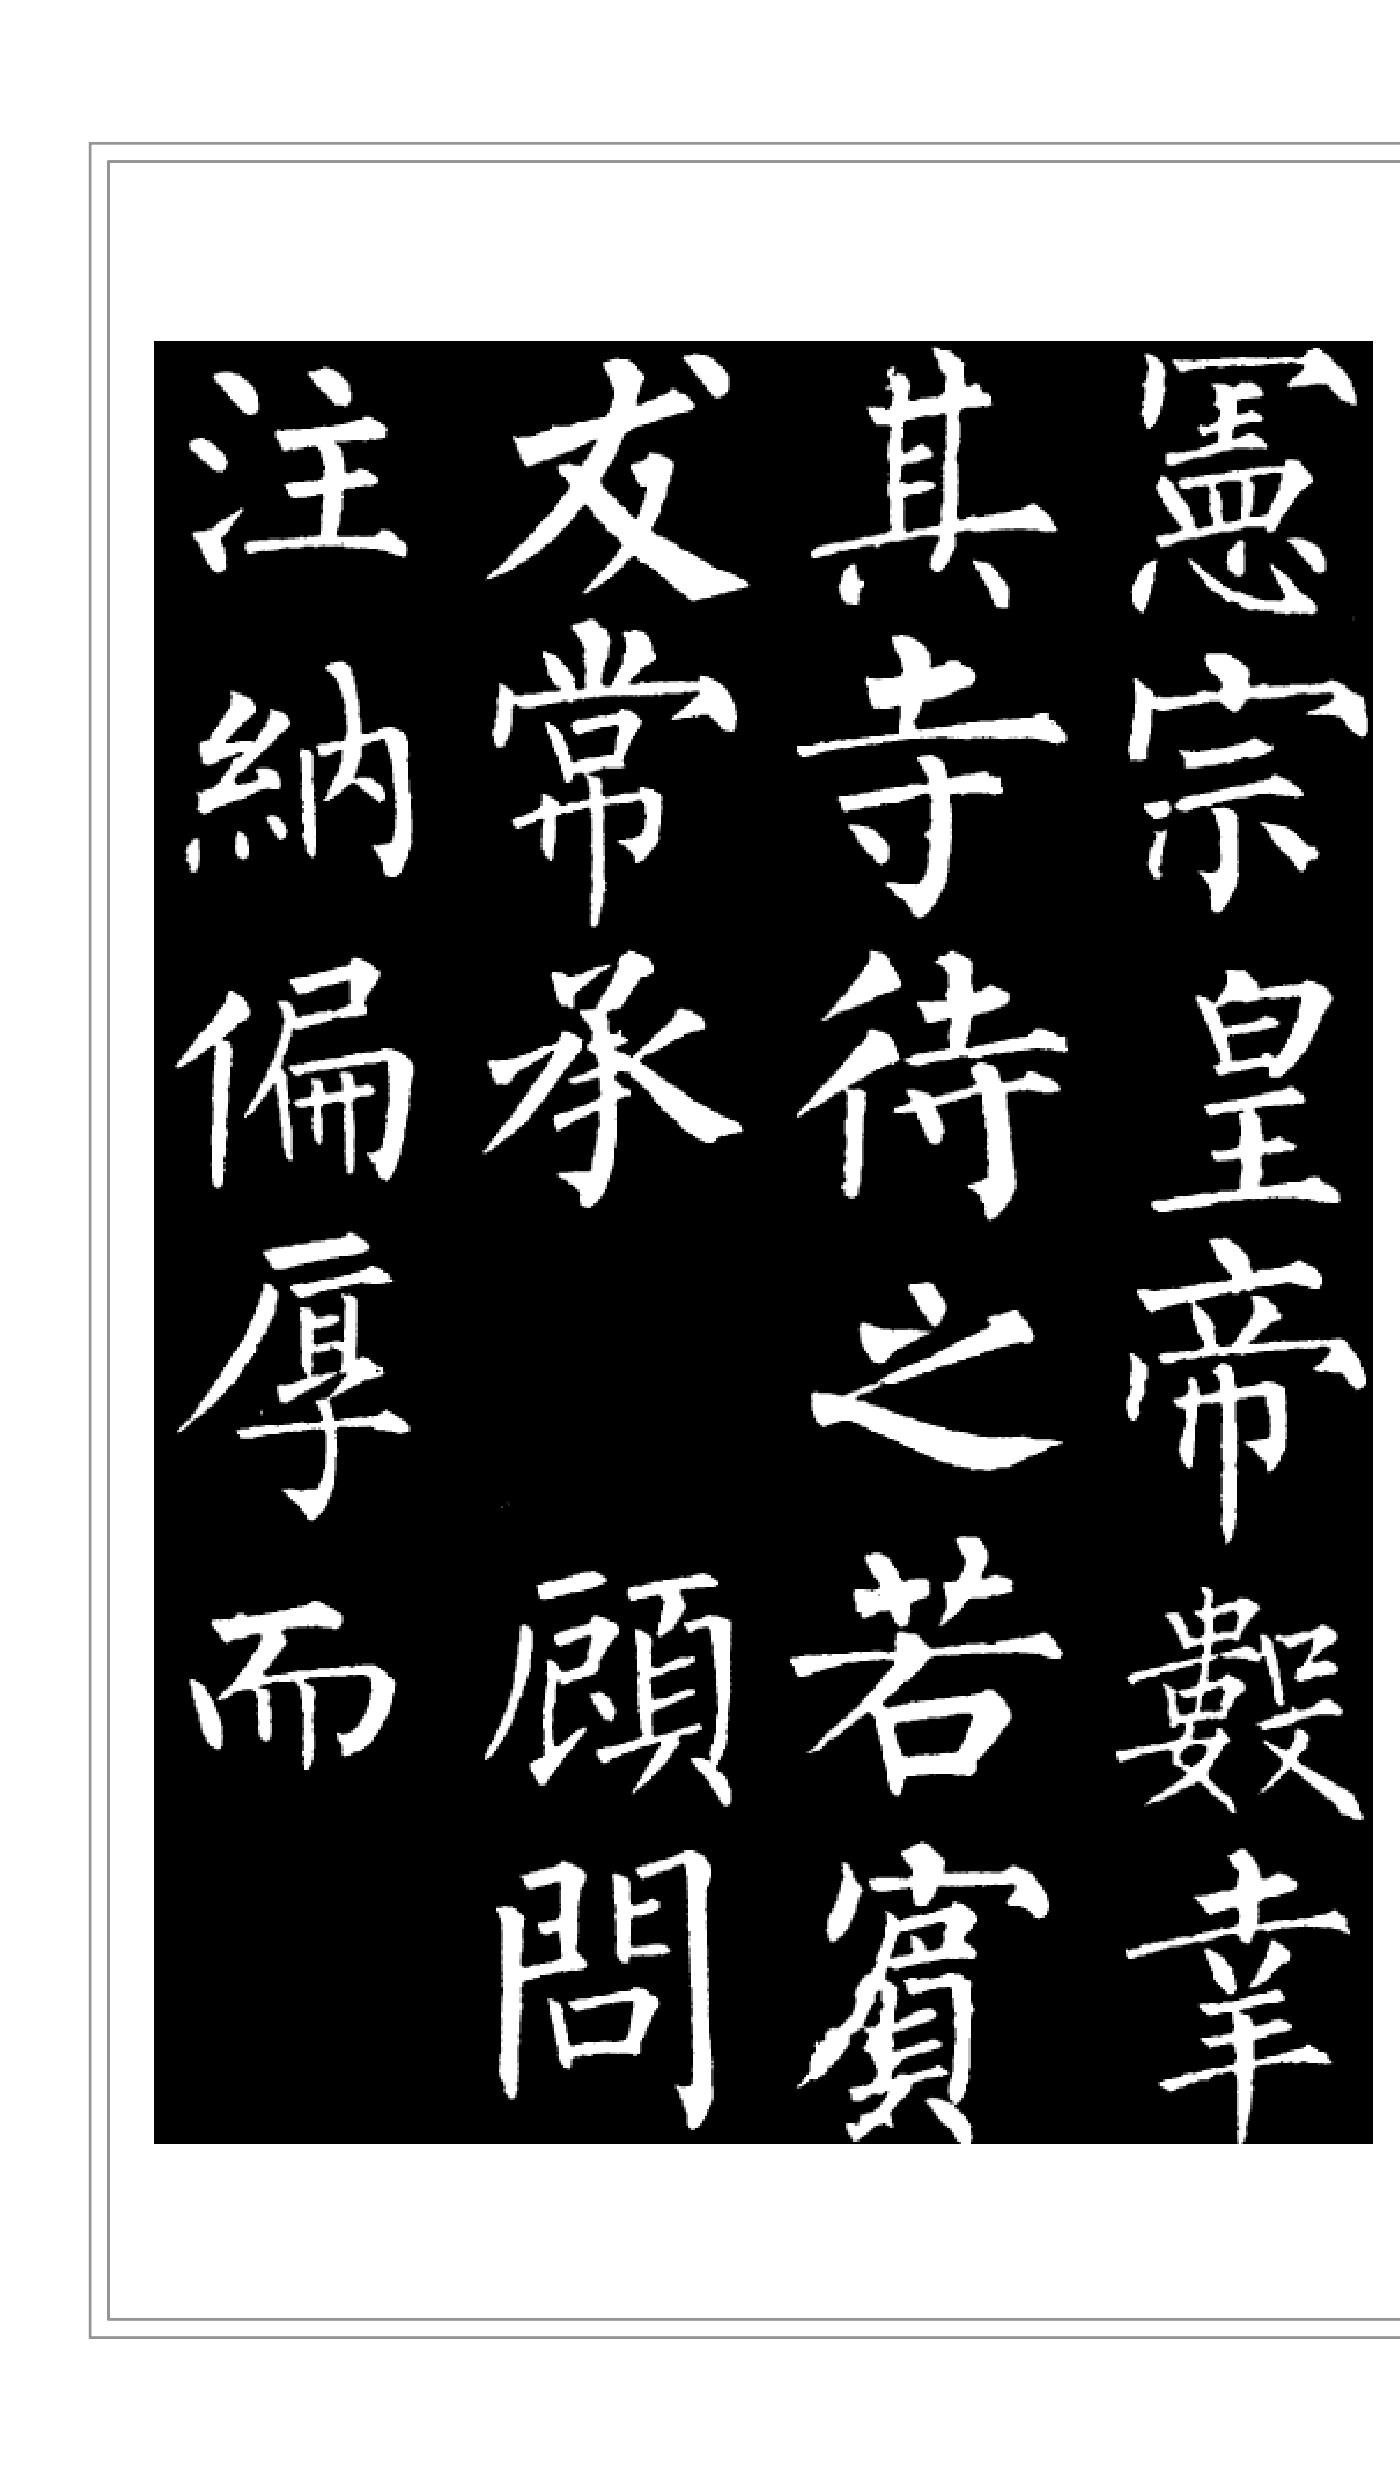 憲宗皇帝數幸
其寺待之若賓
友常承 顧問
注納偏厚而